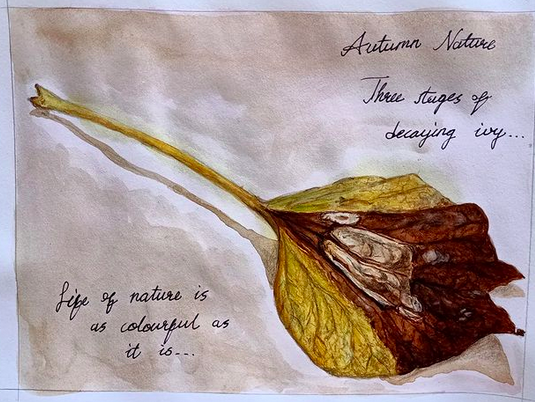 Autumn Nature
Three stages of
decaying ivy...
Life of nature is
as colourful as
it is...